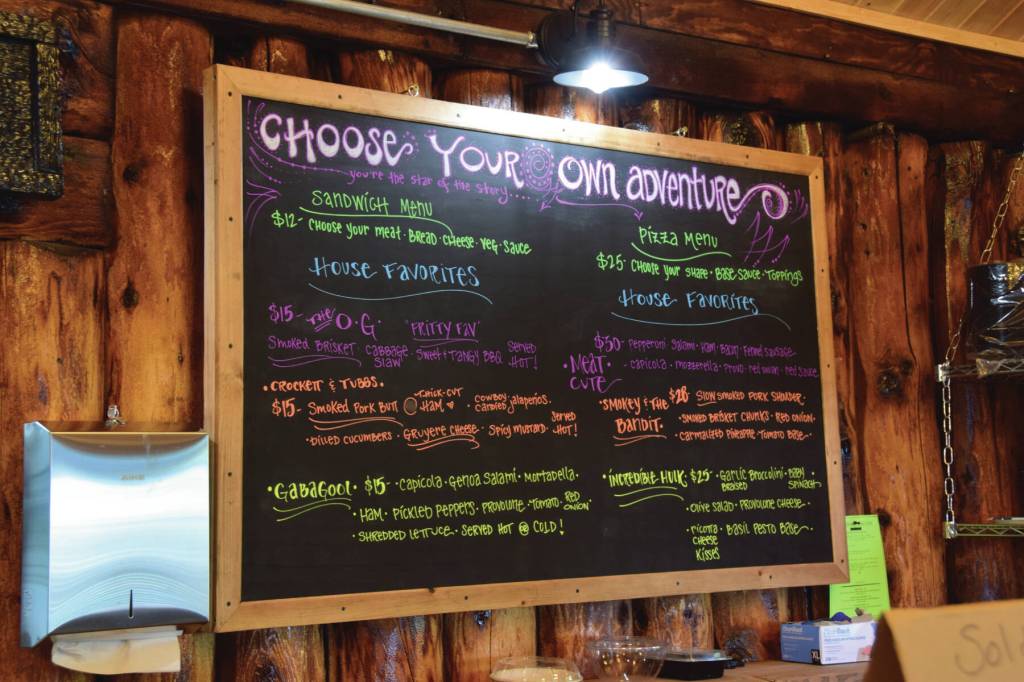 CHOOSE YOUR OWN ADVENTURE
you're the star of the story
SANDWICH MENU
$12- CHOOSE YOUR MEAT · BREAD · CHEESE · VEG · SAUCE
HOUSE FAVORITES
$15- THE O.G. "FRITTY FAV"
SMOKED BRISKET · CABBAGE SLAW · SWEET & TANGY BBQ SERVED HOT!
· CROCKETT & TUBBS ·
$15- SMOKED PORK BUTT THICK-CUT HAM · COWBOY CANDIED JALAPEÑOS ·
· DILLED CUCUMBERS · GRUYERE CHEESE · SPICY MUSTARD · SERVED HOT!
· GABAGOOL · $15 · CAPICOLA · GENOA SALAMI · MORTADELLA ·
· HAM · PICKLED PEPPERS · PROVOLONE · TOMATO · RED ONION ·
· SHREDDED LETTUCE · SERVED HOT @ COLD!
PIZZA MENU
$25- CHOOSE YOUR SHAPE · BASE SAUCE · TOPPINGS
HOUSE FAVORITES
· MEAT CUTE
$30 · PEPPERONI · SALAMI · HAM · BACON · FENNEL SAUSAGE
· CAPICOLA · MOZZERELLA · PROVO · RED ONION · RED SAUCE
"SMOKEY & THE BANDIT"
$28 · SLOW SMOKED PORK SHOULDER
· SMOKED BRISKET CHUNKS · RED ONION ·
· CARMALIZED PINEAPPLE · TOMATO BASE
· INCREDIBLE HULK · $25 · GARLIC BRAISED BROCCOLINI · BABY SPINACH
· OLIVE SALAD · PROVOLONE CHEESE ·
· RICOTTA CHEESE KISSES · BASIL PESTO BASE
XL
Sol